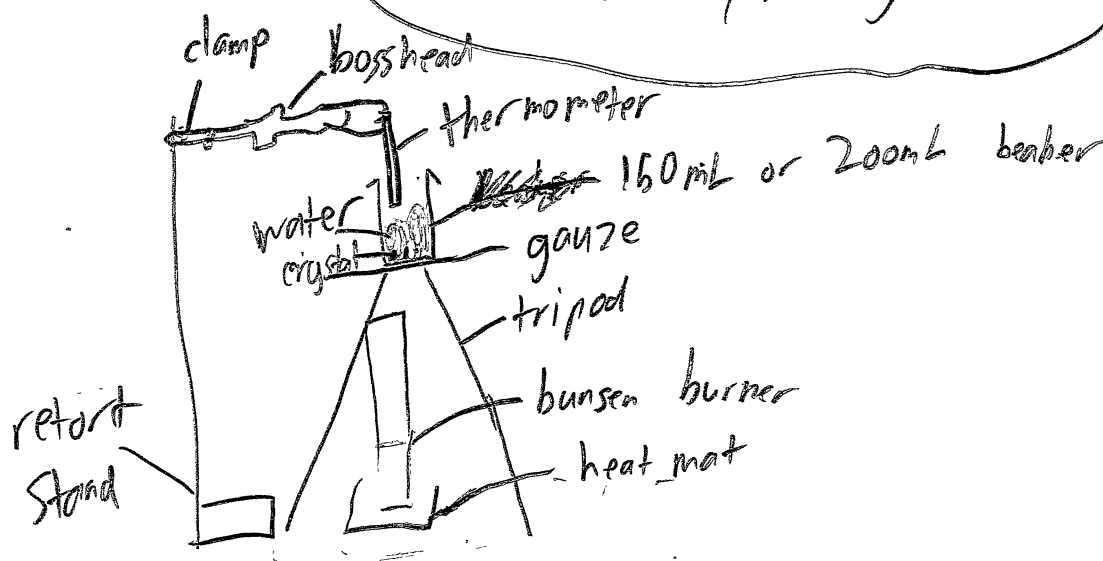 clamp
bosshead
thermometer
150mL or 200mL beaker
water
crystal
gauze
tripod
bunsen burner
heat mat
retort
stand